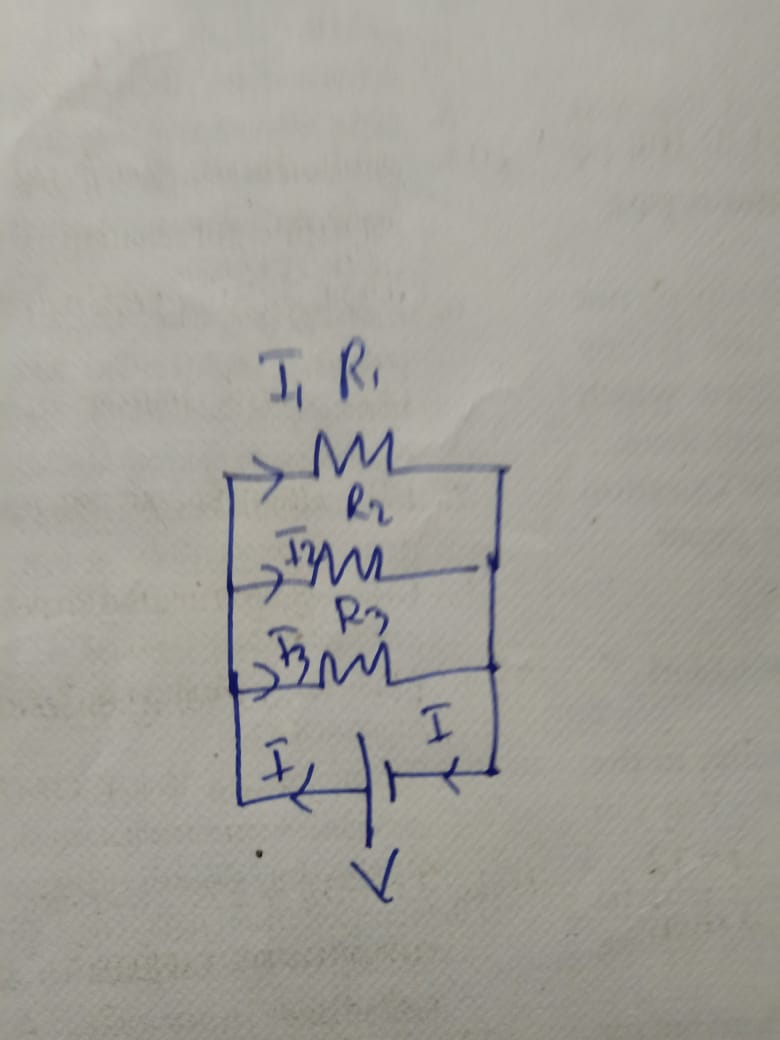 I₁ R₁
R₂
I₂
R₃
I₃
I
I
V